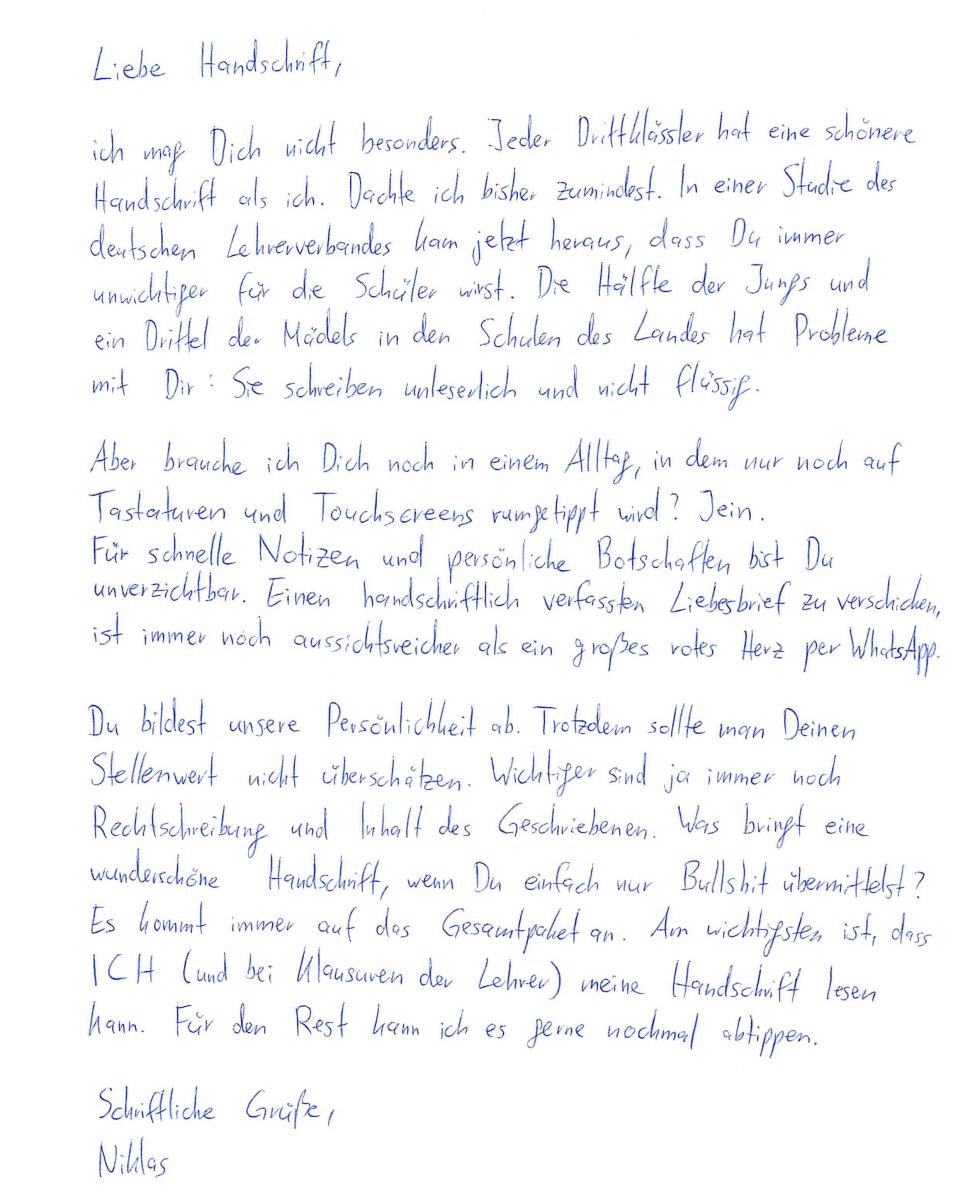 Liebe Handschrift,
ich mag Dich nicht besonders. Jeder Drittklässler hat eine schönere
Handschrift als ich. Dachte ich bisher zumindest. In einer Studie des
deutschen Lehrerverbandes kam jetzt heraus, dass Du immer
unwichtiger für die Schüler wirst. Die Hälfte der Jungs und
ein Drittel der Mädels in den Schulen des Landes hat Probleme
mit Dir: Sie schreiben unleserlich und nicht flüssig.
Aber brauche ich Dich noch in einem Alltag, in dem nur noch auf
Tastaturen und Touchscreens rumgetippt wird? Jein.
Für schnelle Notizen und persönliche Botschaften bist Du
unverzichtbar. Einen handschriftlich verfassten Liebesbrief zu verschicken,
ist immer noch aussichtsreicher als ein großes rotes Herz per WhatsApp.
Du bildest unsere Persönlichkeit ab. Trotzdem sollte man Deinen
Stellenwert nicht überschätzen. Wichtiger sind ja immer noch
Rechtschreibung und Inhalt des Geschriebenen. Was bringt eine
wunderschöne Handschrift, wenn Du einfach nur Bullshit übermittelst?
Es kommt immer auf das Gesamtpaket an. Am wichtigsten ist, dass
ICH (und bei Klausuren der Lehrer) meine Handschrift lesen
kann. Für den Rest kann ich es gerne nochmal abtippen.
Schriftliche Grüße,
Niklas